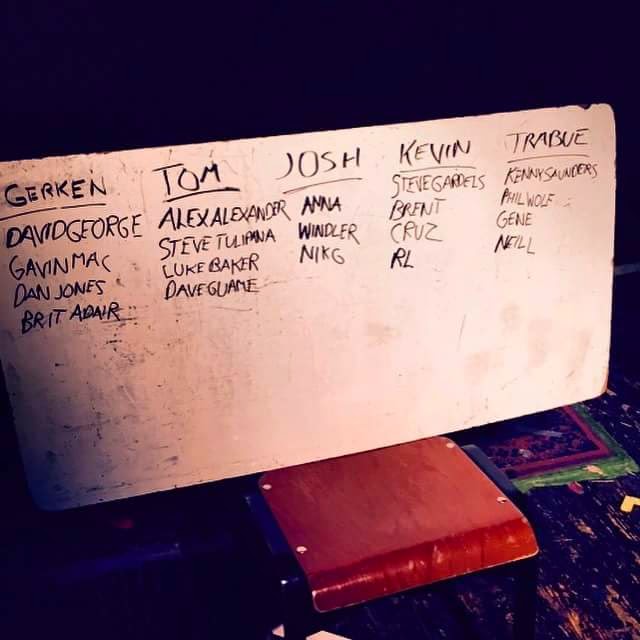 GERKEN
DAVID GEORGE
GAVIN MAC
DAN JONES
BRIT ADAIR
TOM
ALEX ALEXANDER
STEVE TULIPANA
LUKE BAKER
DAVE GUAME
JOSH
ANNA
WINDLER
NIKG
KEVIN
STEVE GARDELS
BRENT
CRUZ
RL
TRABUE
KENNY SAUNDERS
PHIL WOLF
GENE
NEILL